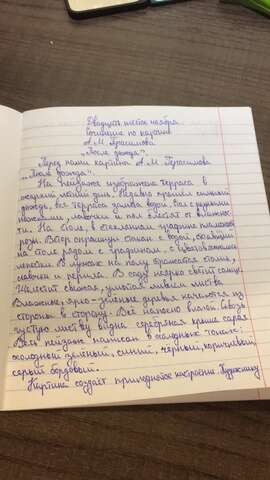 Двадцать шестое ноября
Сочинение по картине
А.М. Герасимова
„После дождя".
Перед нами картина А.М. Герасимова
„После дождя".
На пейзаже изображена терраса в
летний дни. Недавно прошёл сильный
дождь, вся терраса залита водой. Стол с резными
ножками, лавочки и пол блестят от влажнос-
ти. На столе, в стеклянном графине
розы. Ветер опрокинул стакан с водой, стоявший
на столе рядом с графином, с
В лужах на полу отражаются столик,
лавочки и перила. В саду неярко светит солнце.
Шелестит свежая, умытая ливнем листва.
Влажные, ярко-зелёные деревья качаются из
стороны в сторону. Всё напоено влагой. Сквозь
густую листву видна серебряная крыша сарая.
Весь пейзаж написан в холодных тонах:
холодный зелёный, синий, чёрный, коричневый,
серый бордовый.
Картина создаёт приподнятое настроение. Художнику